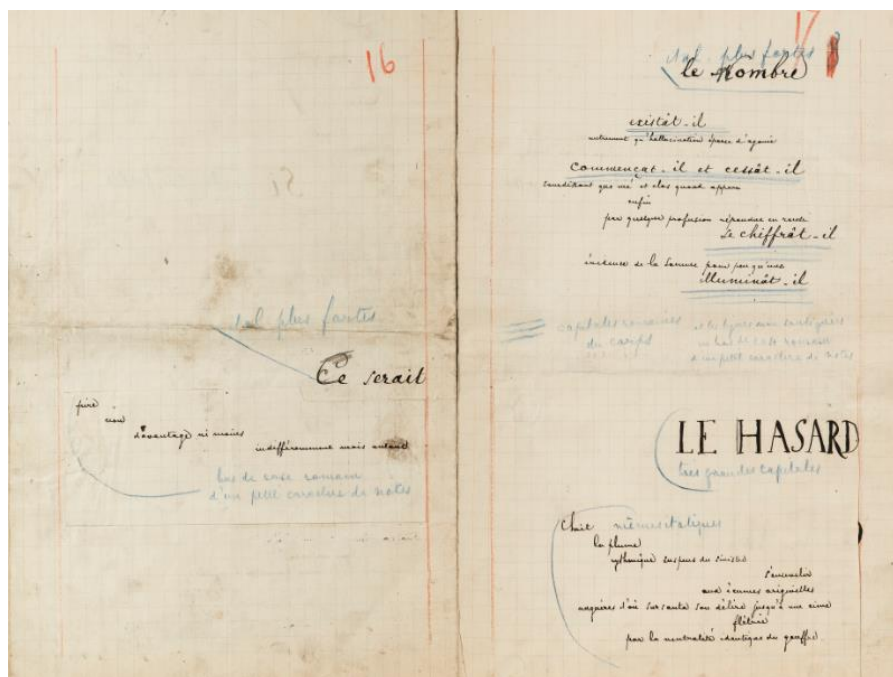 16
ital. plus fortes
Ce serait
pire
non
davantage ni moins
indifféremment mais autant
bas de casse romain
d'un petit caractère de notes
17
ital. plus fortes
le Nombre
existât-il
autrement qu'hallucination éparse d'agonie
commençât-il et cessât-il
sourdant que nié et clos quand apparu
enfin
par quelque profusion répandue en rareté
se chiffrât-il
évidence de la somme pour peu qu'une
illuminât-il
capitales romaines
du corps
et les lignes sous
en bas de casse romain
d'un petit caractère de notes
LE HASARD
très grandes capitales
Choit
mêmes italiques
la plume
rythmique suspens du sinistre
s'ensevelir
aux écumes originelles
naguères d'où sursauta son délire jusqu'à une cime
flétrie
par la neutralité identique du gouffre